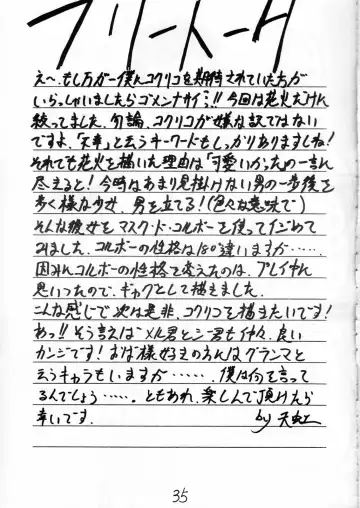 フリートーク
え〜、もし万が一僕にコクリコを期待されていた方が
いらっしゃいましたらゴメンナサイ…!! 今回は花火だけに
絞ってました。勿論、コクリコが嫌な訳ではない
ですよ、「不幸」と云うキーワードもしっかりありますしね!
それでも花火を描いた理由は「可愛いかった」の一言に
尽きると! 今時はあまり見掛けない男の一歩後を
歩く様な少女、男を立てる!(色々な意味で)
そんな彼女をマスク・ド・コルボーを使ってイジめて
みました。コルボーの性格は180°違いますが……
因みにコルボーの性格を変えたのは、プレイ中に
思いつたので、ギャグとして描きました。
こんな感じで次は是非、コクリコを描きたいです!
あっ!! そう言えばメル君とシー君も仲々、良い
カンジです! おば様好きの方にはグランマと
云うキャラもいますが……、僕は何を言って
るんでしょう……。ともあれ、楽しんで頂けたら
幸いです。 by 天虹
35